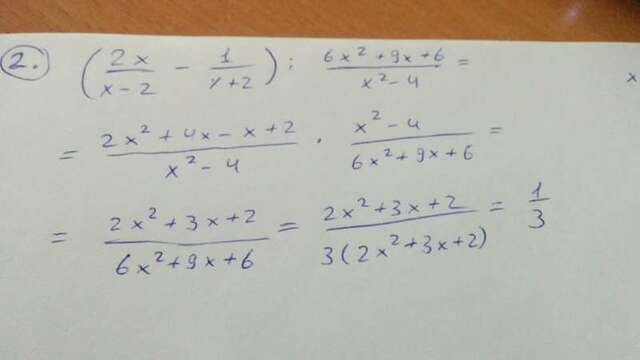 2. (2x/(x-2) - 1/(x+2)) : (6x²+9x+6)/(x²-4) =
= (2x²+4x-x+2)/(x²-4) · (x²-4)/(6x²+9x+6) =
= (2x²+3x+2)/(6x²+9x+6) = (2x²+3x+2)/(3(2x²+3x+2)) = 1/3
x